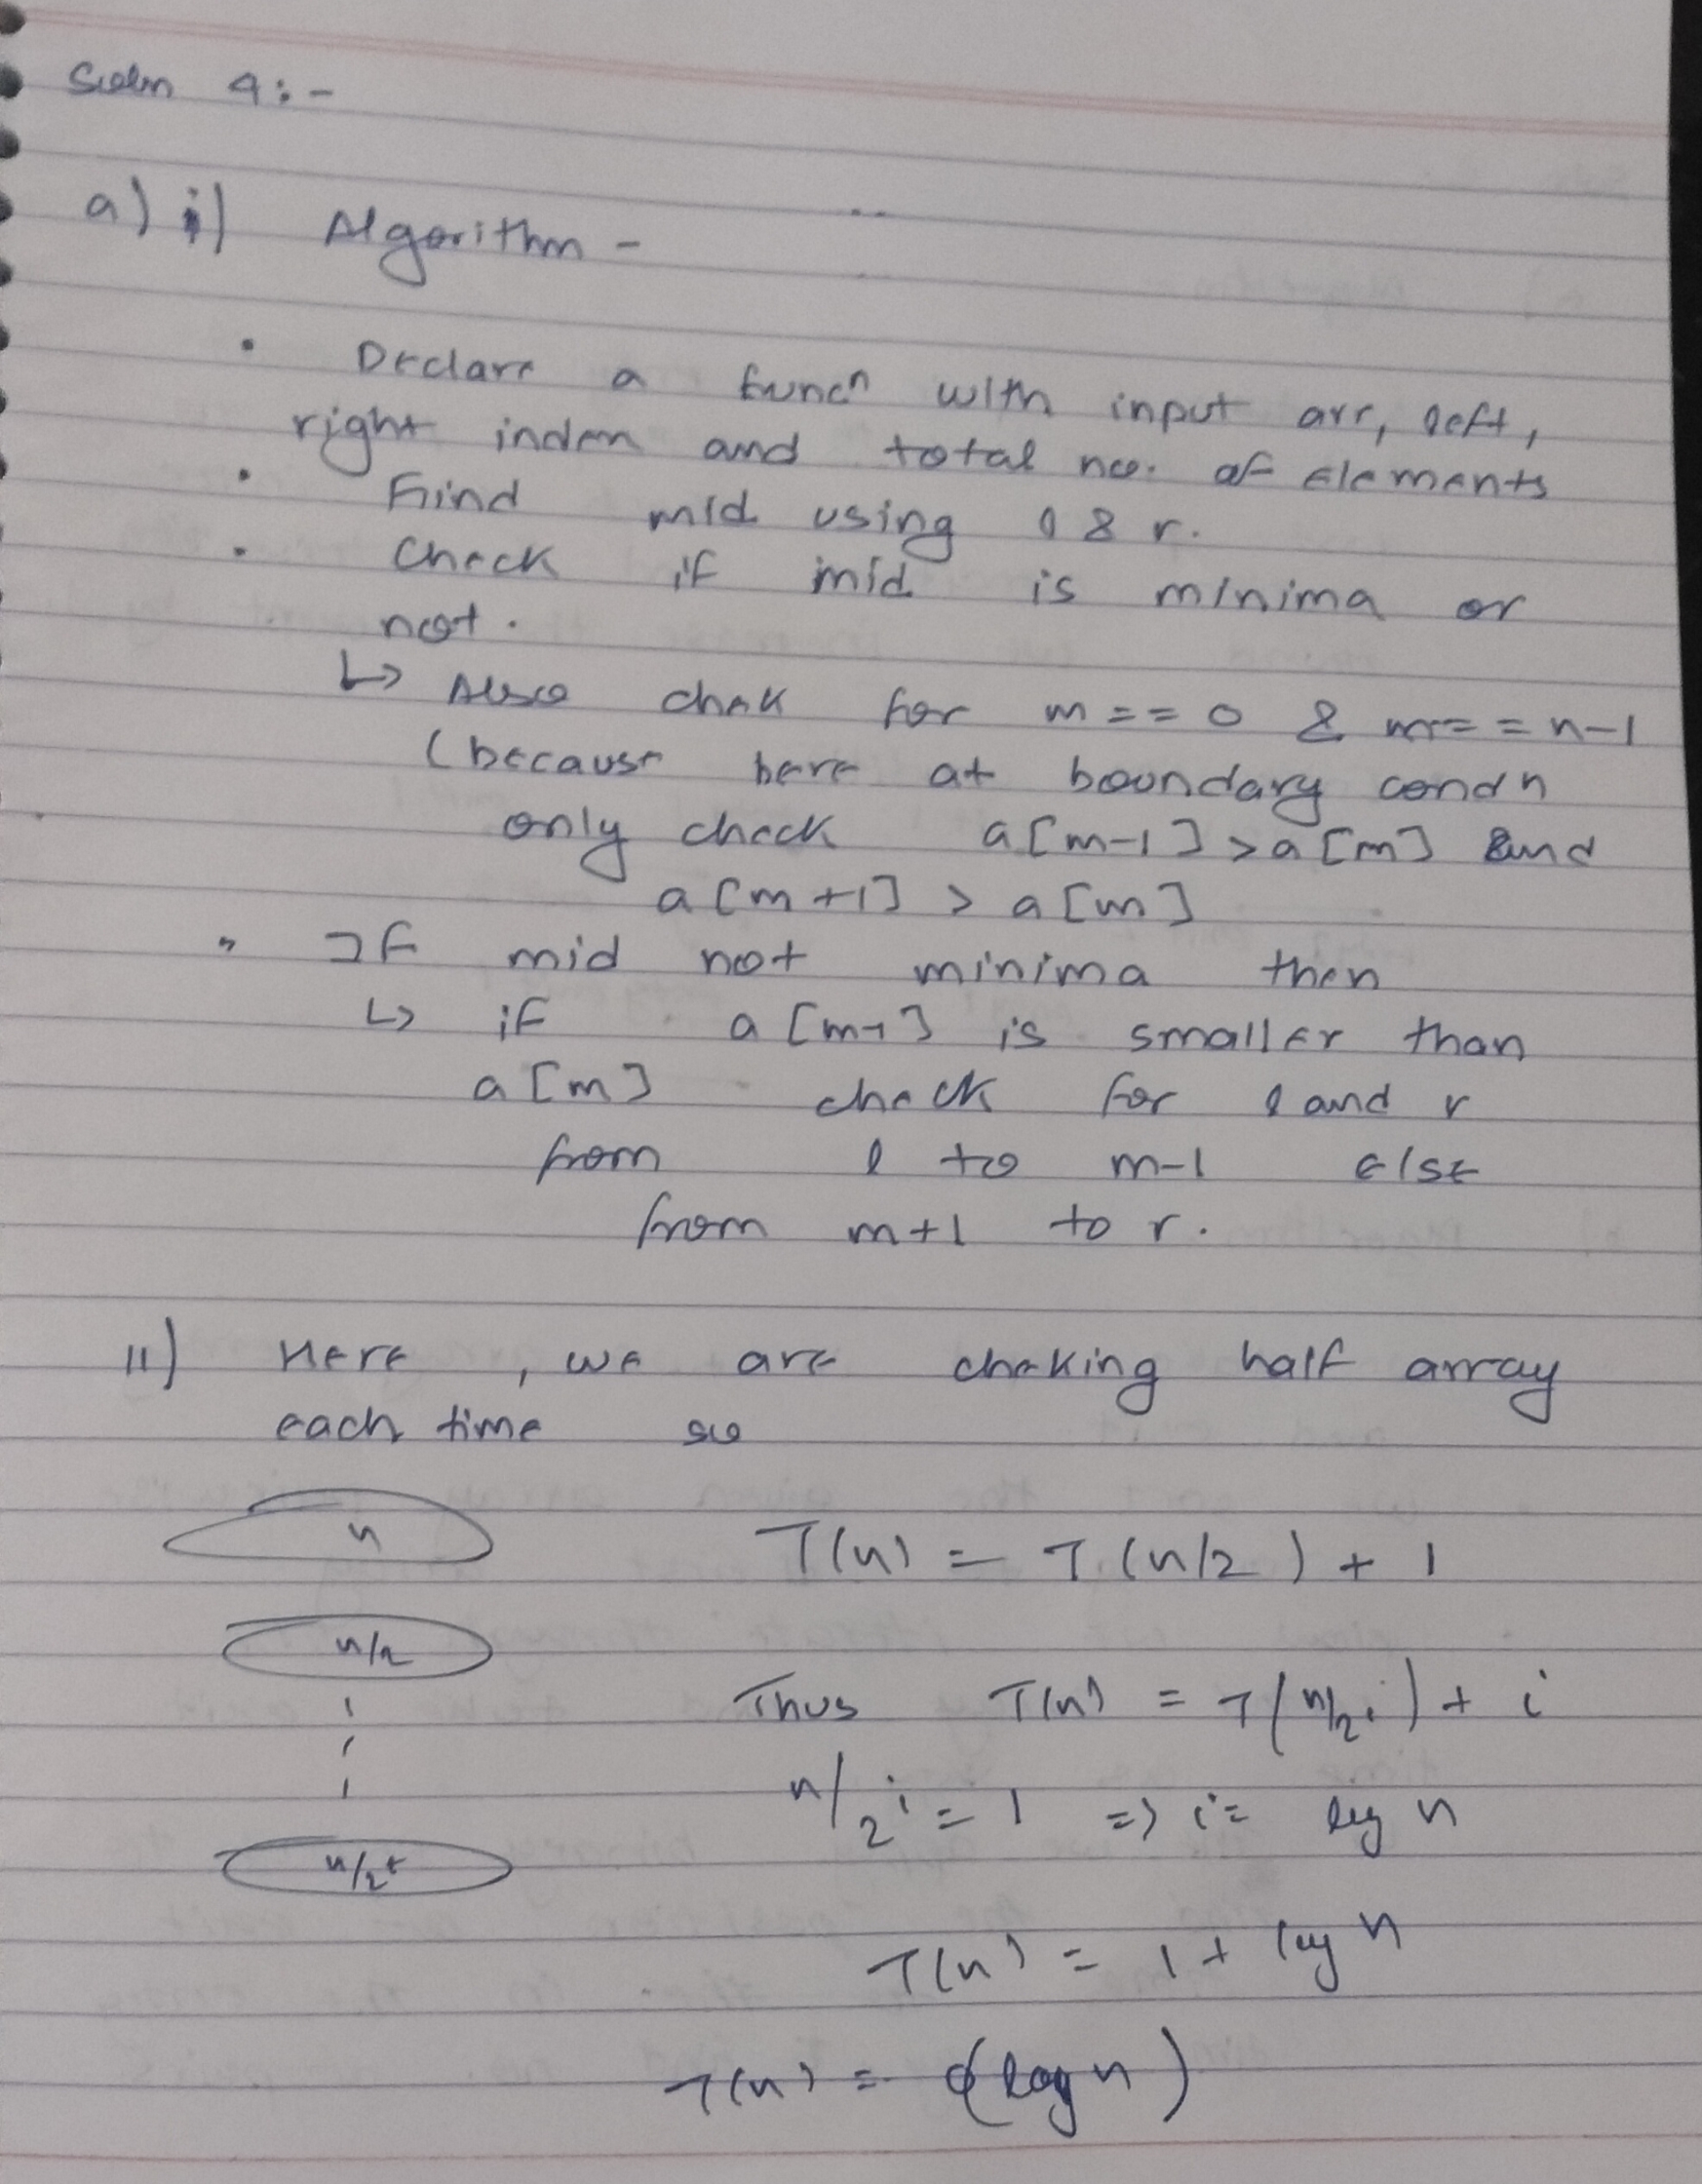 Soln 4:-
a) i) Algorithm -
• Declare a funcn with input arr, left,
right index and total no. of elements
• Find mid using l & r.
• Check if mid is minima or
not.
↳ Also chek for m==0 & m==n-1
(because here at boundary condn
only check a[m-1]>a[m] and
a[m+1] > a[m]
• If mid not minima then
↳ if a[m-1] is smaller than
a[m] check for l and r
from l to m-1 else
from m+1 to r.
ii) Here, we are cheking half array
each time so
n T(n) = T(n/2) + 1
n/2
Thus T(n) = T(n/2^i) + i
n/2^i = 1 => i = log n
n/2^i
T(n) = 1 + log n
T(n) = O(log n)